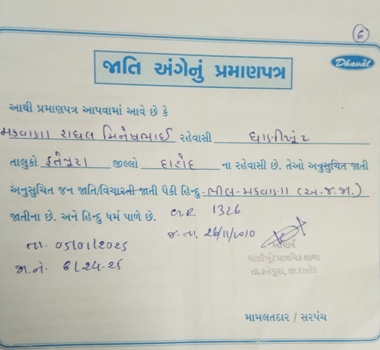 6
Dhaval
જાતિ અંગેનું પ્રમાણપત્ર
આથી પ્રમાણપત્ર આપવામાં આવે છે કે
મકવાણા રાહુલ મિનેષભાઈ રહેવાસી ધાણીખુંટ
તાલુકો ફતેપુરા જીલ્લો દાહોદ ના રહેવાસી છે. તેઓ અનુસુચિત જાતી
અનુસુચિત જન જાતિ/વિચારતી જાતી પૈકી હિન્દુ ભીલ-મકવાણા (અ.જ.જા.)
જાતીના છે. અને હિન્દુ ધર્મ પાળે છે. GR 1326
જ.તા. 26/11/2010
તા. 05/01/2025
જા.નં. 6/24-25
આચાર્ય
ધાણીખુંટ પ્રાથમિક શાળા
તા.ફતેપુરા, જી.દાહોદ
મામલતદાર / સરપંચ